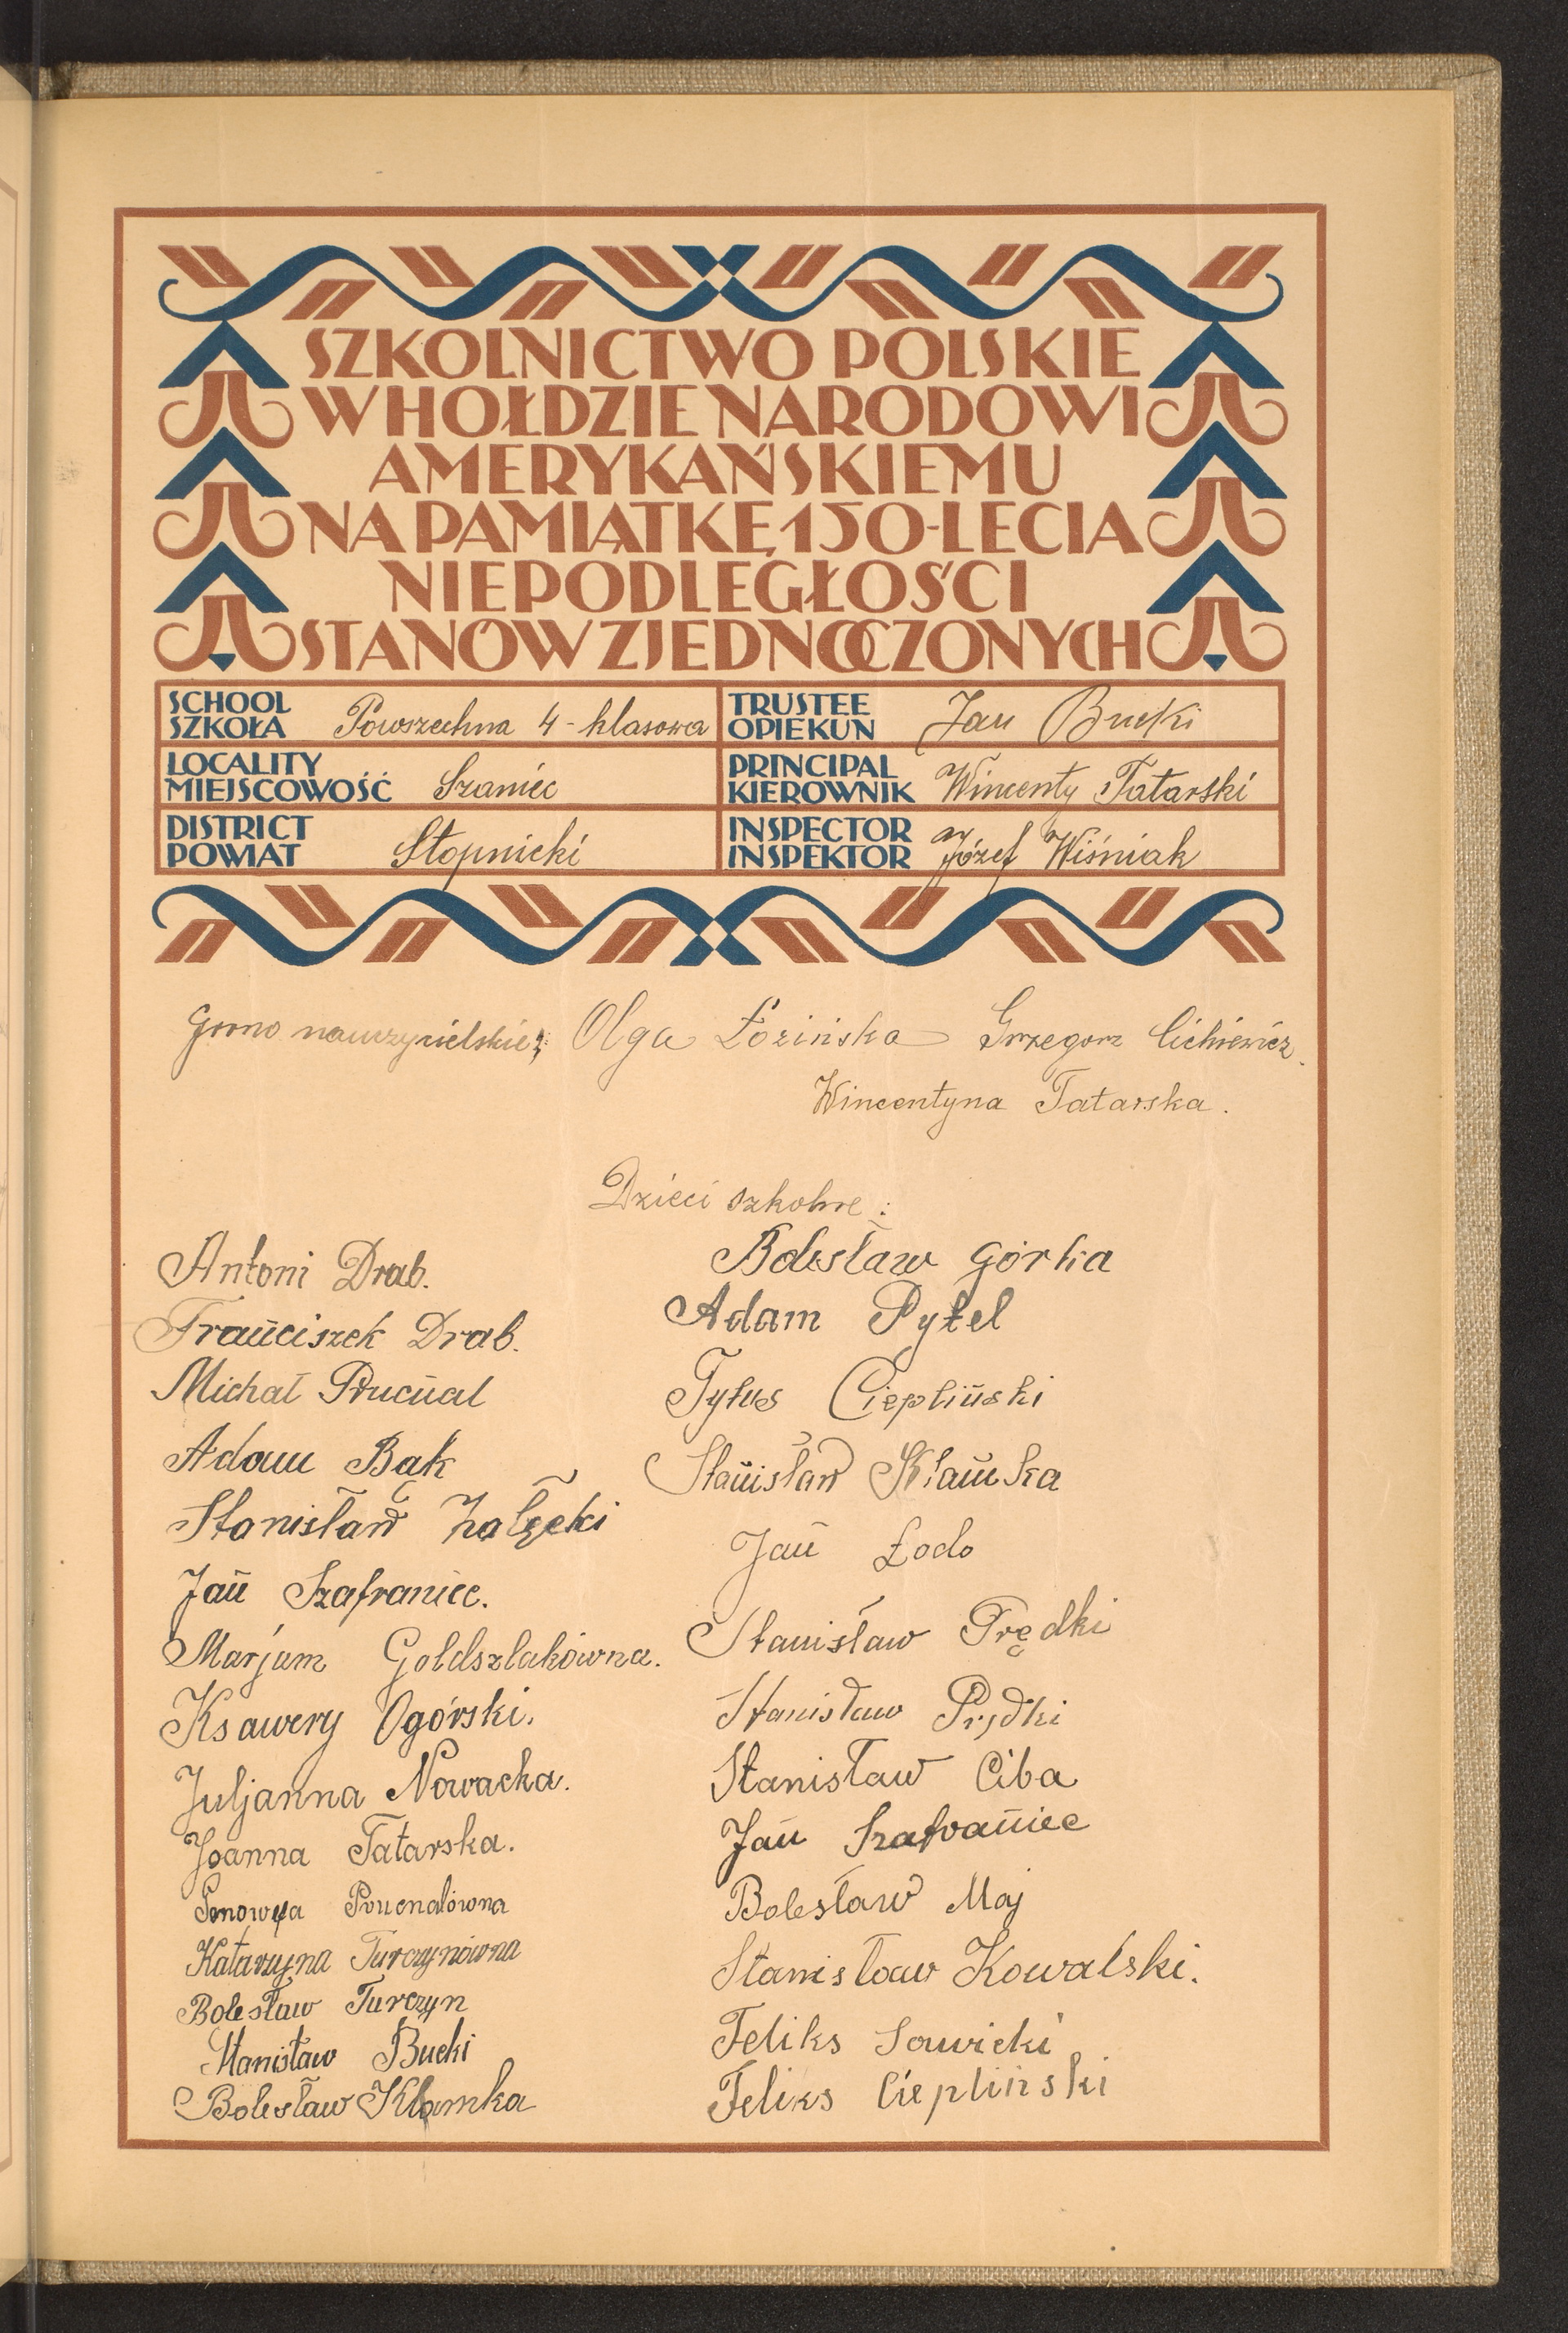 SZKOLNICTWO POLSKIE
W HOŁDZIE NARODOWI
AMERYKAŃSKIEMU
NA PAMIĄTKĘ 150-LECIA
NIEPODLEGŁOŚCI
STANÓW ZJEDNOCZONYCH
SCHOOL
SZKOŁA Powszechna 4-klasowa
TRUSTEE
OPIEKUN Jan Bucki
LOCALITY
MIEJSCOWOŚĆ Szaniec
PRINCIPAL
KIEROWNIK Wincenty Tatarski
DISTRICT
POWIAT Stopnicki
INSPECTOR
INSPEKTOR Józef Wiśniak
Grono nauczycielskie: Olga Łozińska Grzegorz Cichiewicz.
Wincentyna Tatarska.
Dzieci szkolne:
Antoni Drab.
Franciszek Drab.
Michał
Adam Bąk
Stanisław Załęcki
Jan Szafraniec.
Marjam Goldszlakówna.
Ksawery Ogórski.
Juljanna Nowacka.
Joanna Tatarska.
Katarzyna Turczynówna
Bolesław Turczyn
Stanisław Bucki
Bolesław Klamka
Bolesław Górka
Adam Pytel
Tytus Ciepliński
Stanisław
Jan Łodo
Stanisław Prędki
Stanisław Prędki
Stanisław Ciba
Jan Szafraniec
Bolesław Maj
Stanisław Kowalski.
Feliks Sowicki
Feliks Ciepliński